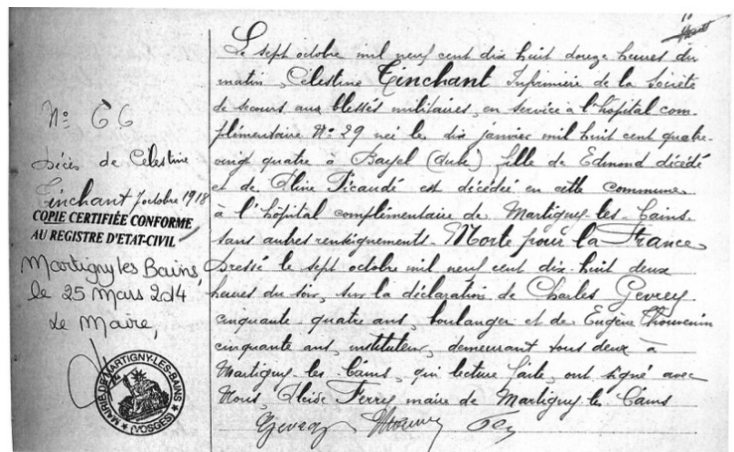 N° 66
Décès de Célestine
Tinchant 7 octobre 1918
COPIE CERTIFIÉE CONFORME
AU REGISTRE D'ETAT-CIVIL
Martigny les Bains,
le 25 Mars 2014
Le Maire,
MAIRIE DE MARTIGNY-LES-BAINS
(VOSGES)
Le sept octobre mil neuf cent dix huit douze heures du
matin, Célestine Tinchant Infirmière de la Société
de secours aux blessés militaires, en service à l'hôpital com-
plémentaire N° 29 née le dix janvier mil huit cent quatre-
vingt quatre à Bayel (Aube) fille de Edmond décédé
et de Picaudé est décédée en cette commune
à l'hôpital complémentaire de Martigny-les-Bains
sans autres renseignements. Morte pour la France
Dressé le sept octobre mil neuf cent dix-huit deux
heures du soir, sur la déclaration de Charles Gevrey
cinquante-quatre ans, boulanger et de Eugène Thouvenin
cinquante ans, instituteur, demeurant tous deux à
Martigny-les-Bains, qui lecture faite, ont signé avec
Nous, Ferry maire de Martigny-les-Bains
Gevrey